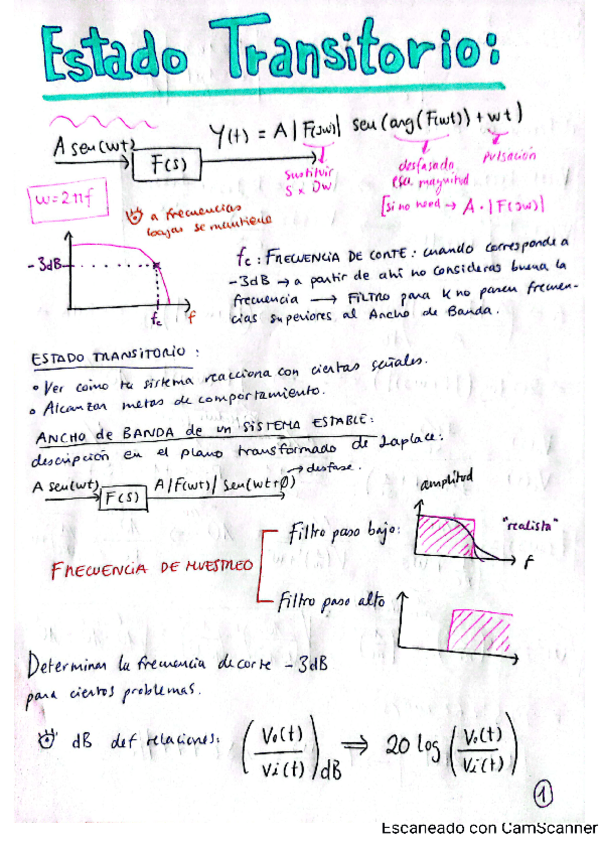 Estado Transitorio:
A sen(wt)
F(s)
Y(t) = A |F(jw)| sen (arg(F(wt)) + wt)
sustituir
s x Jw
desfasada
esa magnitud
[si no need → A · |F(jw)|
pulsación
w = 2πf
a frecuencias
bajas se mantiene
-3dB
fc
f
fc : FRECUENCIA DE CORTE : cuando corresponde a
-3dB → a partir de ahí no consideras buena la
frecuencia → FILTRO para k no pasen frecuen-
cias superiores al Ancho de Banda.
ESTADO TRANSITORIO :
• Ver como tu sistema reacciona con ciertas señales.
• Alcanzar metas de comportamiento.
ANCHO de BANDA de un SISTEMA ESTABLE:
descripción en el plano transformado de Laplace:
A sen(wt)
F(s)
A |F(wt)| sen(wt+Ø)
→ desfase.
FRECUENCIA DE MUESTREO
Filtro paso bajo:
amplitud
"realista"
f
Filtro paso alto
Determinar la frecuencia de corte -3dB
para ciertos problemas.
dB def relaciones: (Vo(t) / Vi(t))dB ⇒ 20 log (Vo(t) / Vi(t))
1
Escaneado con CamScanner